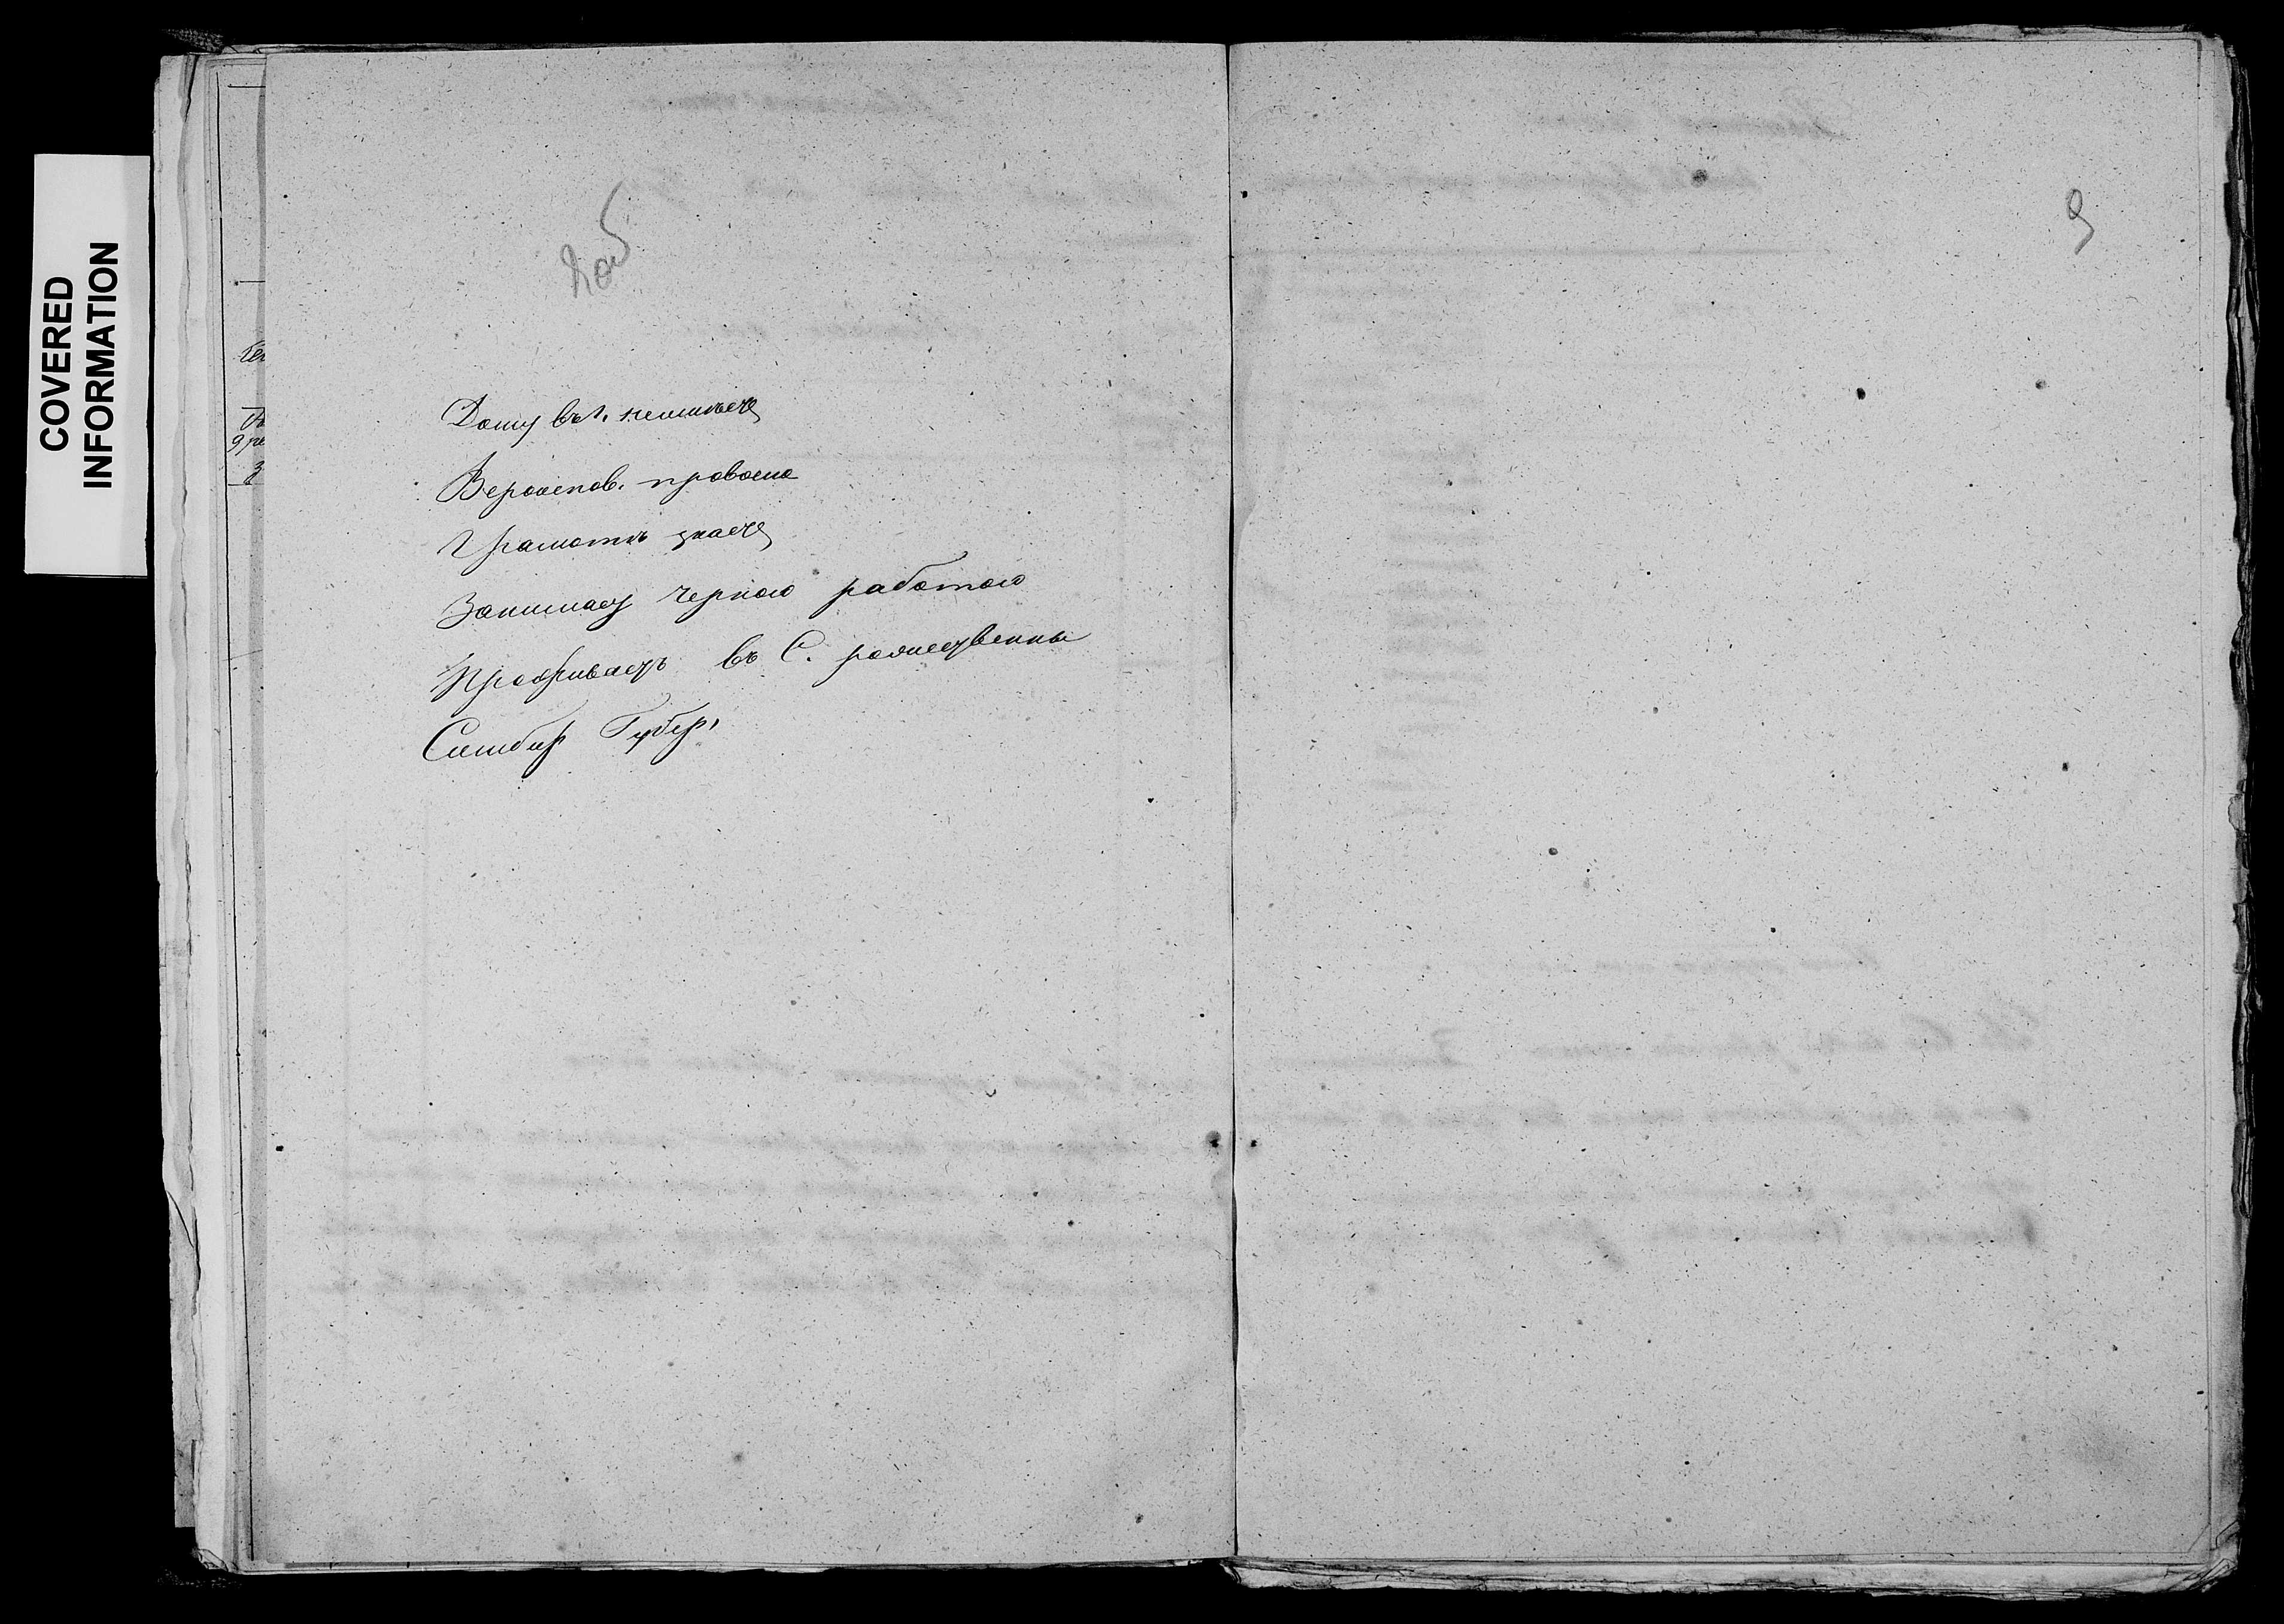 COVERED
INFORMATION
2об
9
Дому въ г. неимѣетъ
Вероиспов. православ
Грамоты знаетъ
Занимает черною работою
Проживаетъ въ С. рождественны
Симбир Губер.